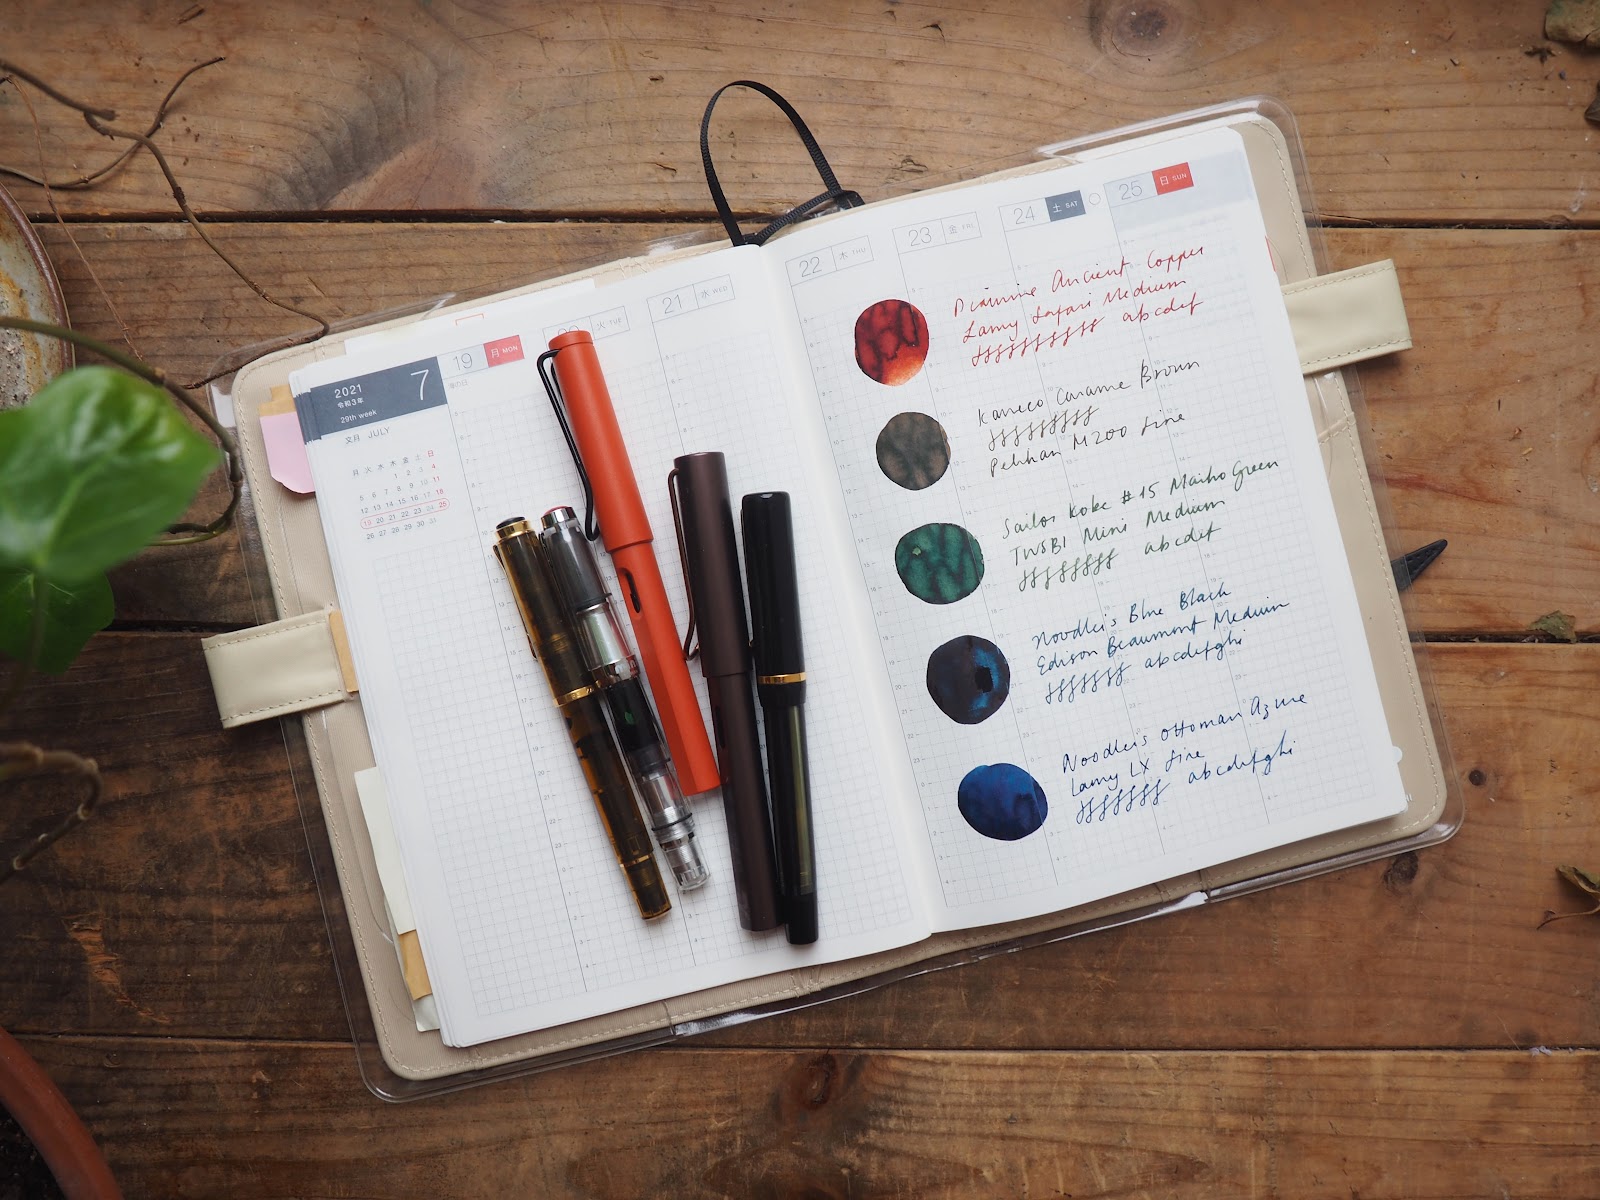 2021
令和3年
29th week
7
文月 JULY
月 火 水 木 金 土 日
1 2 3 4
5 6 7 8 9 10 11
12 13 14 15 16 17 18
19 20 21 22 23 24 25
26 27 28 29 30 31
19 月 MON
海の日
20 火 TUE
21 水 WED
22 木 THU
23 金 FRI
24 土 SAT
25 日 SUN
Diamine Ancient Copper
Lamy Safari Medium
abcdef
Kaweco Caramel Brown
Pelikan M200 fine
Sailor Kobe #15 Maiko Green
TWSBI Mini Medium
abcdef
Noodler's Blue Black
Edison Beaumont Medium
abcdefghi
Noodler's Ottoman Azure
Lamy LX fine
abcdefghi